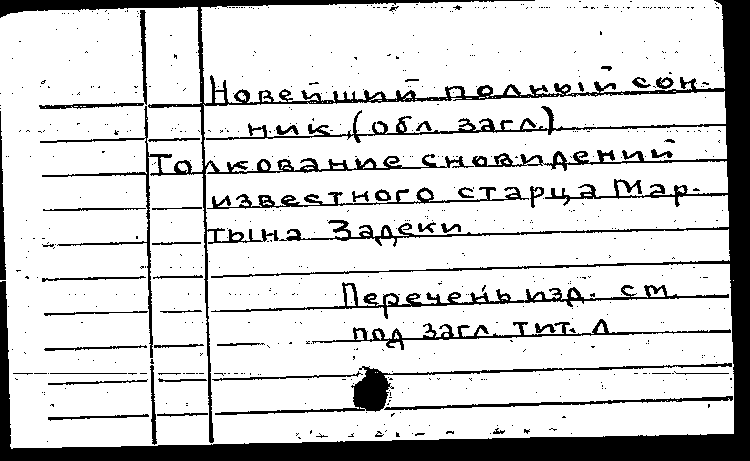 Новейший полный сон-
ник (обл. загл.)
Толкование сновидений
известного старца Мар-
тына Задеки.
Перечень изд. см.
под загл. тит. л.